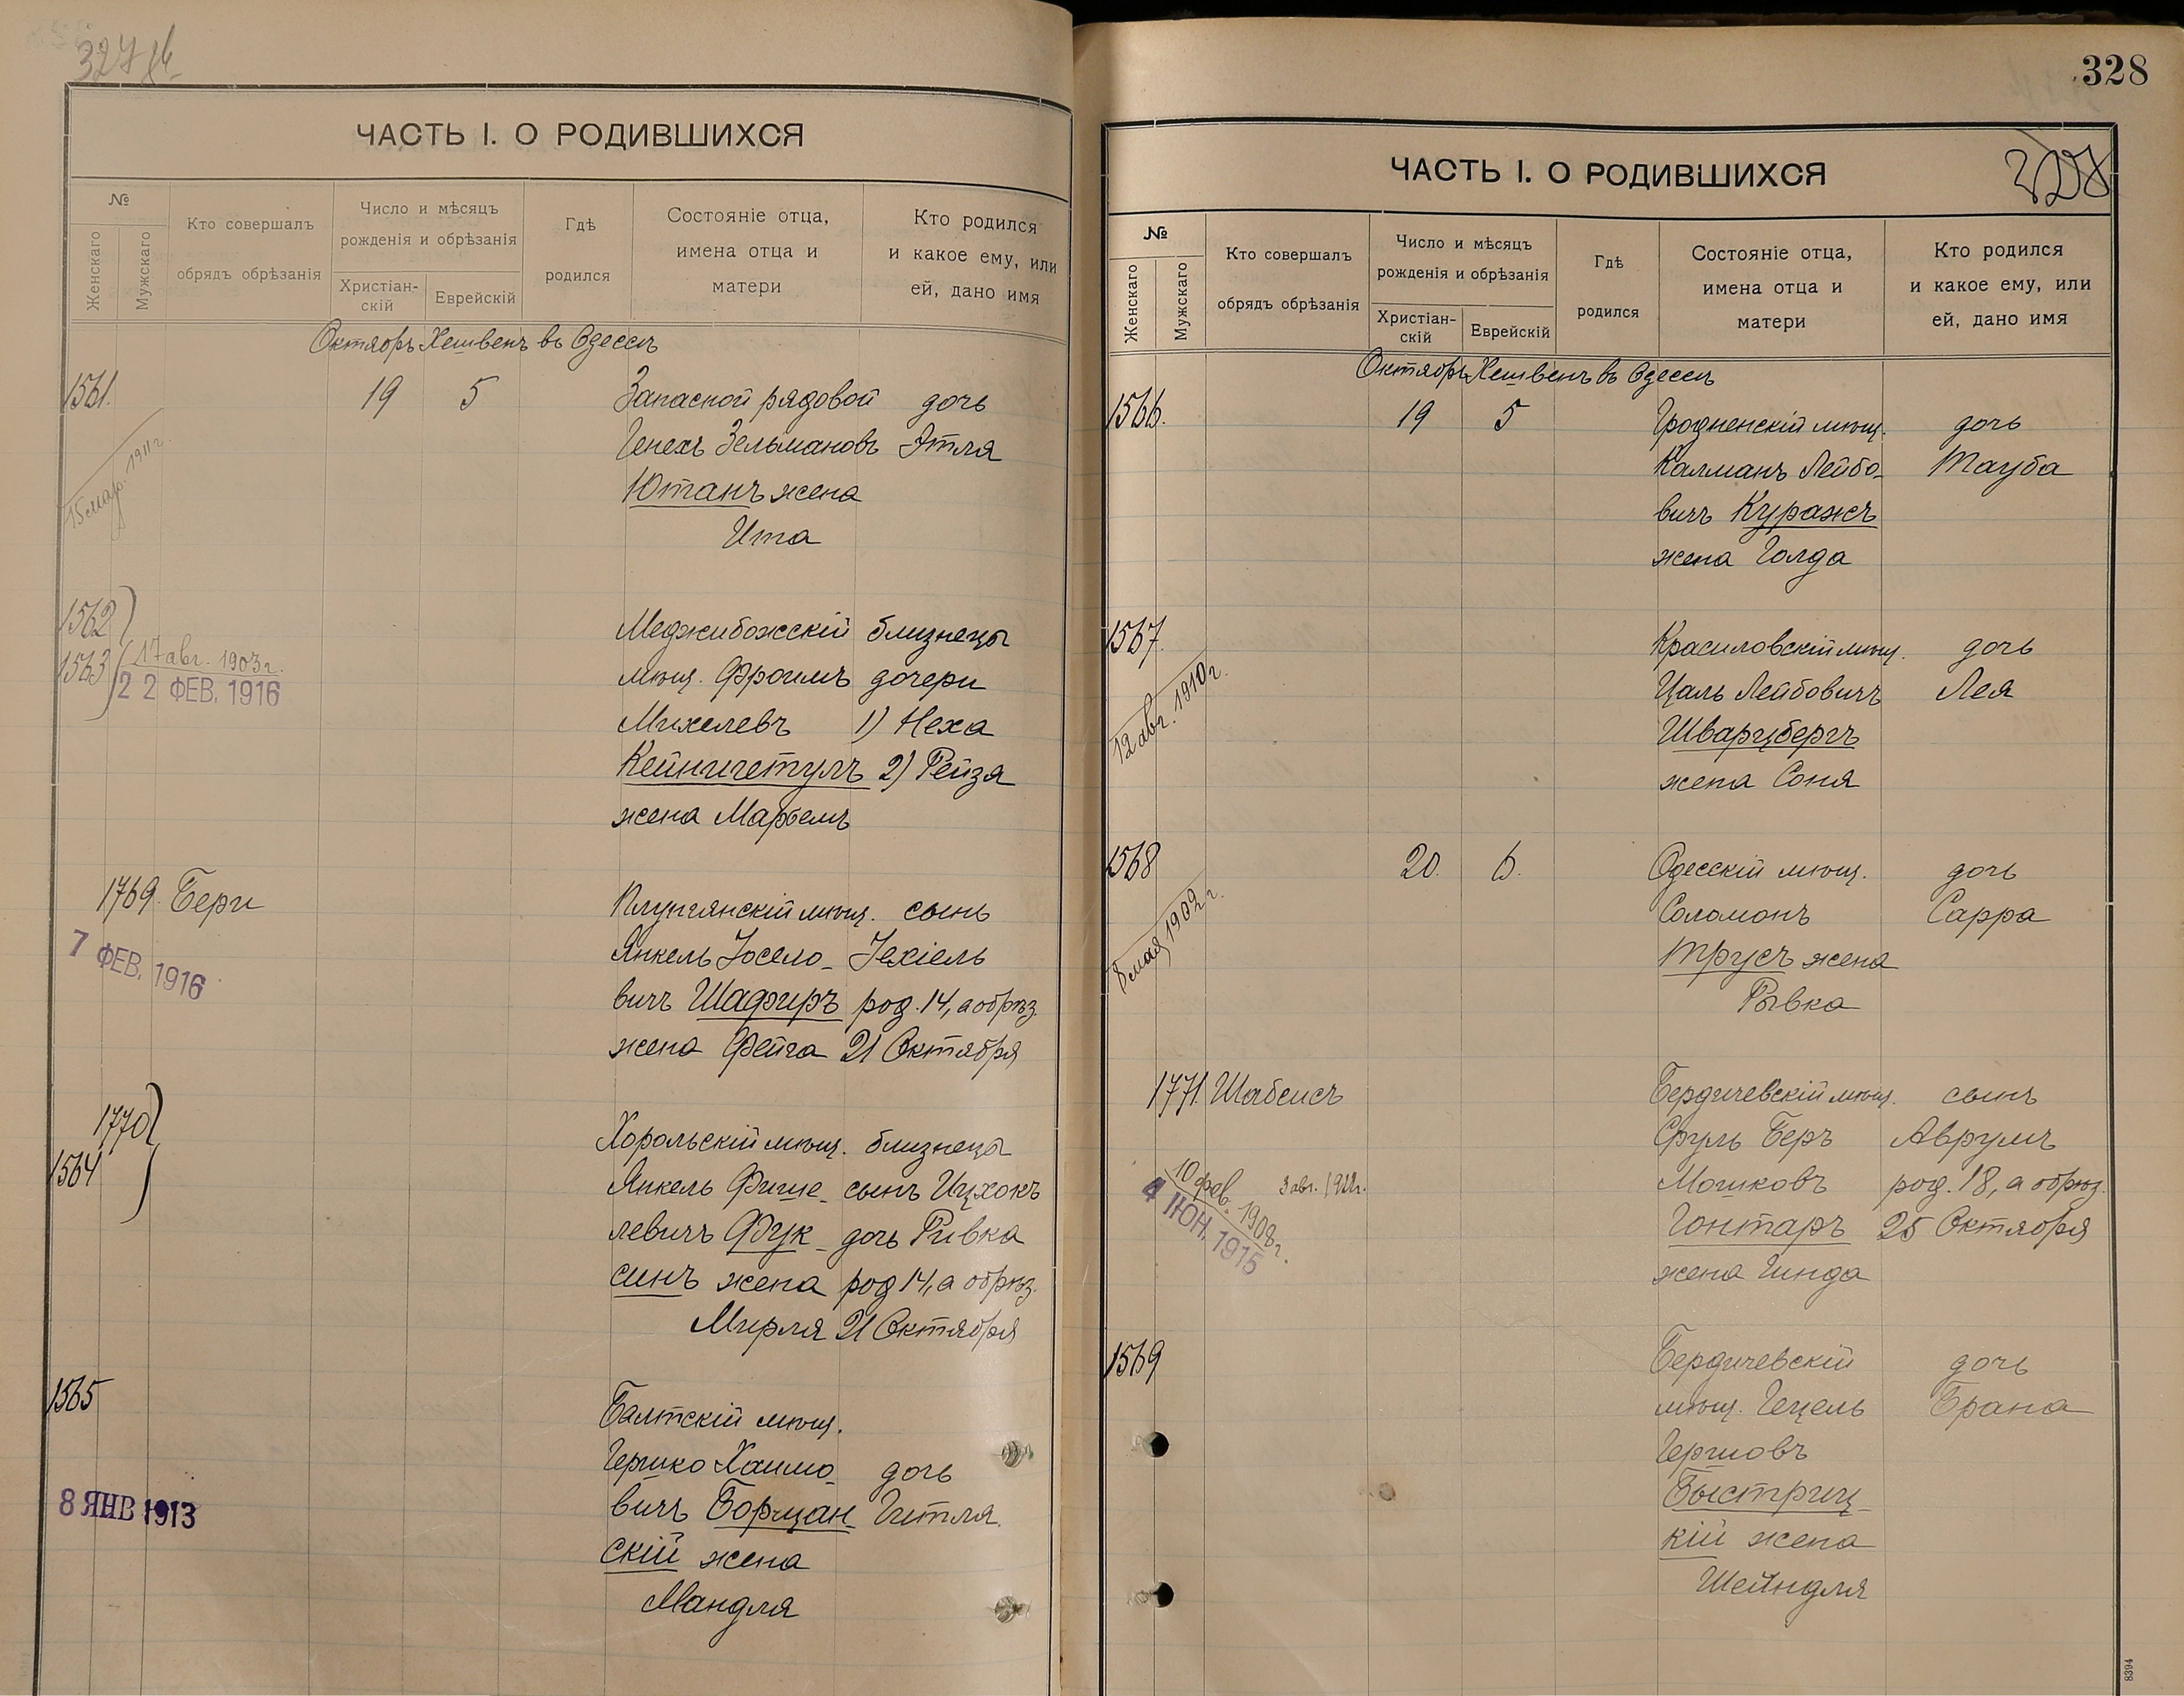 327 об
ЧАСТЬ I. О РОДИВШИХСЯ
№
Женскаго
Мужскаго
Кто совершалъ
обрядъ обрѣзанія
Число и мѣсяцъ
рожденія и обрѣзанія
Христіан-
скій
Еврейскій
Гдѣ
родился
Состояніе отца,
имена отца и
матери
Кто родился
и какое ему, или
ей, дано имя
Октябрь Хешвенъ въ Одессѣ
1561. 19 5 Запасной рядовой дочь
Генехъ Зельмановъ Этля
15 мар. 1911 г. Ютанъ жена
Ита
1562 Меджибожскій близнецы
1563 17 авг. 1903 г. мѣщ. Фроимъ дочери
22 ФЕВ. 1916
Михелевъ 1) Неха
Кейнигстулъ 2) Рейза
жена Марьемъ
1769. Бери Плунгянскій мѣщ. сынъ
7 ФЕВ. 1916 Янкель Іосело- Іехіель
вичъ Шафиръ род. 14, а обрѣз.
жена Фейга 21 Октября
1770 Хорольскій мѣщ. близнецы
1564 Янкель Фише- сынъ Ицхокъ
левичъ Фук- дочь Ривка
синъ жена род 14, а обрѣз.
Мирля 21 Октября
1565 Балтскій мѣщ.
Гершко Хаимо- дочь
8 ЯНВ 1913 вичъ Борщан- Гитля.
скій жена
Мандля
328
ЧАСТЬ I. О РОДИВШИХСЯ
328
№
Женскаго
Мужскаго
Кто совершалъ
обрядъ обрѣзанія
Число и мѣсяцъ
рожденія и обрѣзанія
Христіан-
скій
Еврейскій
Гдѣ
родился
Состояніе отца,
имена отца и
матери
Кто родился
и какое ему, или
ей, дано имя
Октябрь Хешвенъ въ Одессѣ
1566. 19 5 Гродненскій мѣщ. дочь
Калманъ Лейбо- Тауба
вичъ Куражъ
жена Голда
1567. Красиловскій мѣщ. дочь
12 авг. 1910 г. Цаль Лейбовичъ Лея
Шварцбергъ
жена Соня
1568 20. 6. Одесскій мѣщ. дочь
8 мая 1909 г. Соломонъ Сарра
Трусъ жена
Рывка
1771. Шабсисъ Бердичевскій мѣщ. сынъ
Сруль Беръ Аврумъ
10 фев. 1908 г. 3 авг. 1922 г. Мошковъ род. 18, а обрѣз.
4 ІЮН. 1915 Гонтаръ 25 Октября
жена Гинда
1569 Бердичевскій дочь
мѣщ. Гецель Брана
Гершовъ
Быстриц-
кій жена
Шейндля
8394